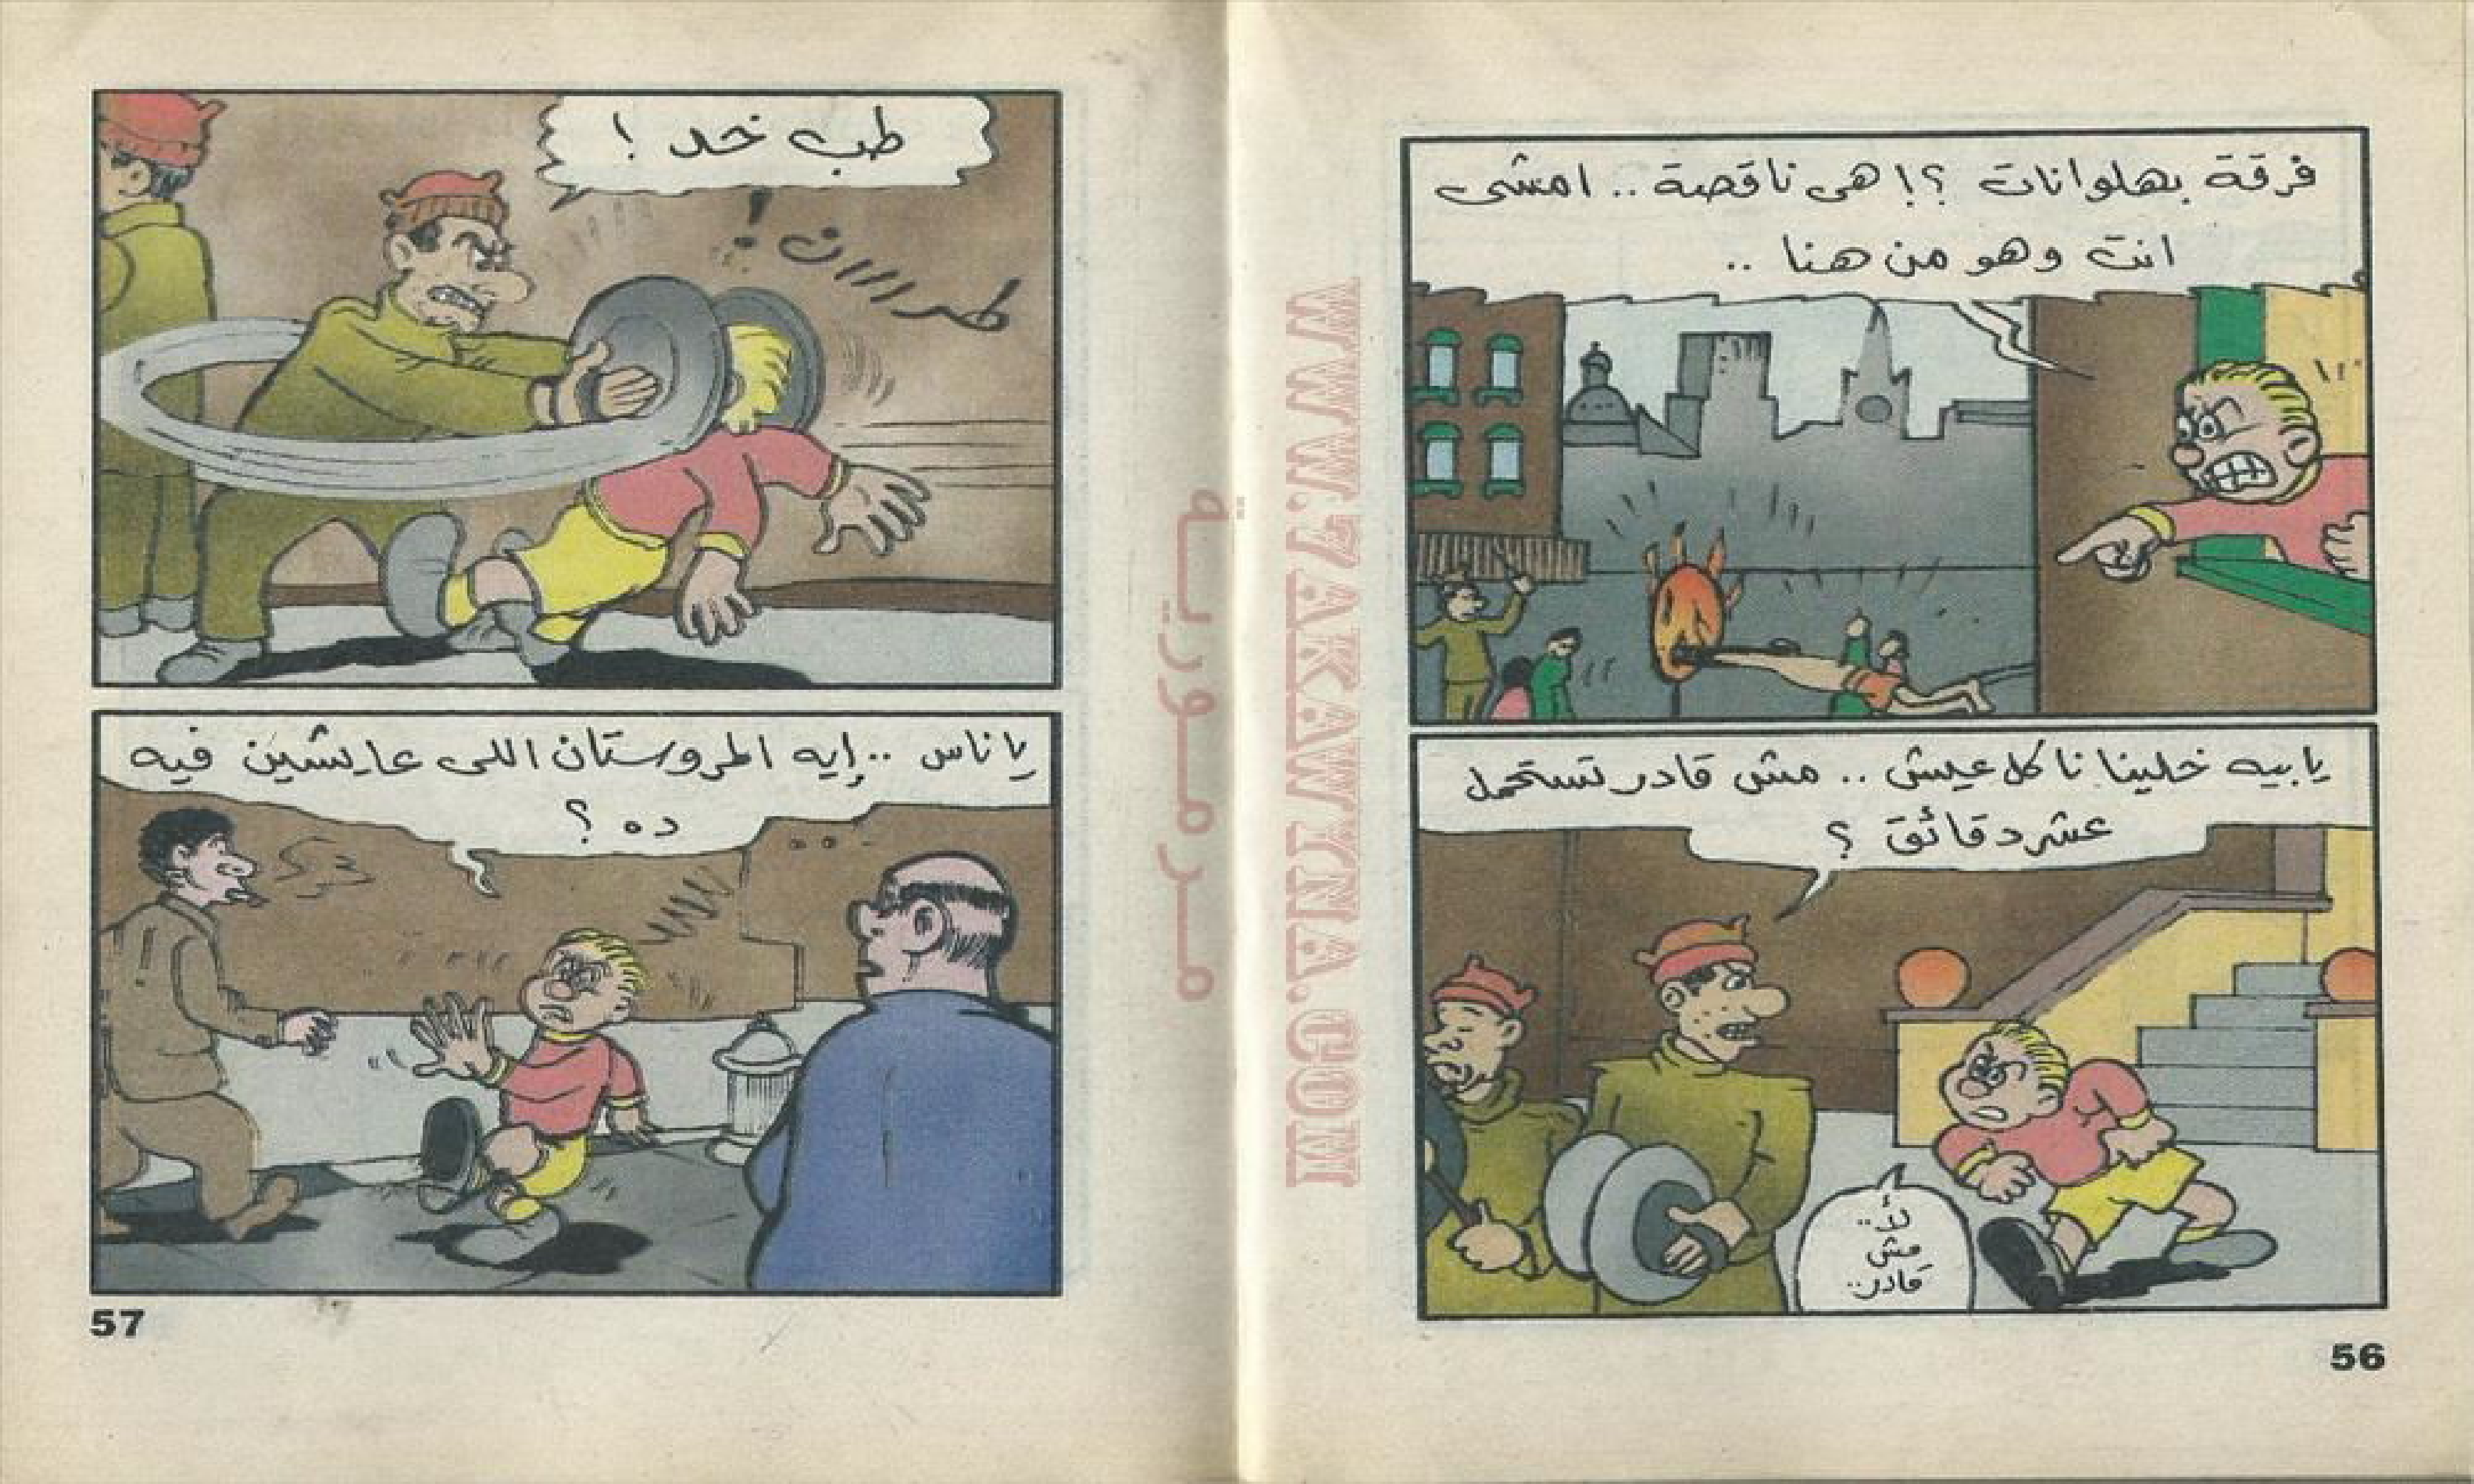 فرقة بهلوانات ؟! هى ناقصة .. امشى
انت وهو من هنا ..
يا بيه خلينا ناكل عيش .. مش قادر تستحمل
عشر دقائق ؟
لأ ..
مش
قادر ..
56
طب خد !
طراااان !
يا ناس .. إيه المروستان اللى عايشين فيه
ده ؟
57
WWW.7AKAWINA.COM
مرمورية